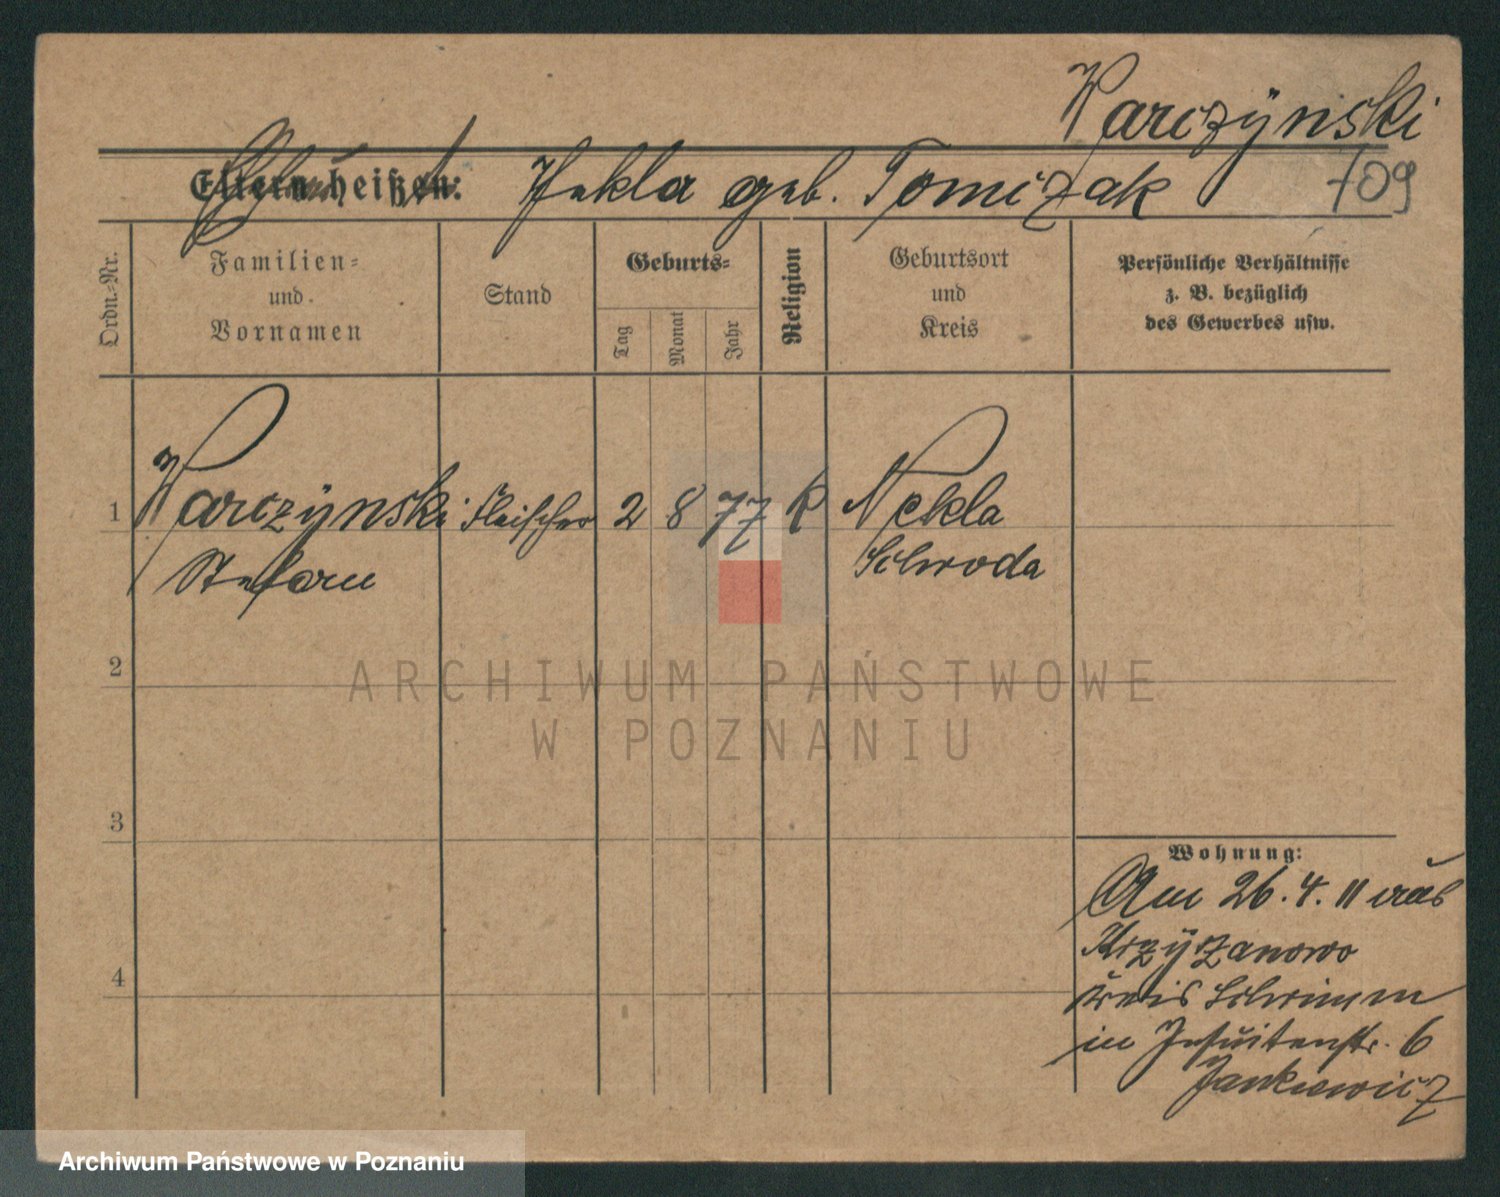 Warczÿnski
Eltern heißen: Thekla geb. Tomczak 709
Ordn.=Nr.
Familien=
und
Vornamen
Stand
Geburts=
Tag
Monat
Jahr
Religion
Geburtsort
und
Kreis
Persönliche Verhältnisse
z. B. bezüglich
des Gewerbes usw.
1 Warczÿnski Fleischer 2 8 77 K Nekla
Stefan Schroda
2
3
4
Wohnung:
Am 26.4.11 aus
Krzÿzanowo
Kreis Schrimm
in Jesuitenstr. 6
Jankiewicz
ARCHIWUM PAŃSTWOWE
W POZNANIU
Archiwum Państwowe w Poznaniu